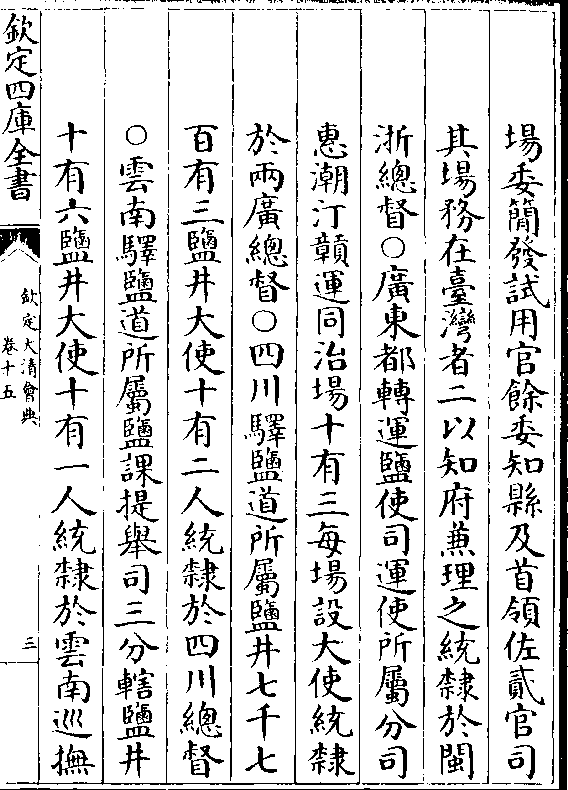 場委簡發試用官餘委知縣及首領佐貳官司
其塲務在臺灣者二以知府兼理之統隸於閩
浙總督○廣東都轉運鹽使司運使所屬分司
惠潮汀贑運同治場十有三每場設大使統隸
於兩廣總督○四川驛鹽道所屬鹽井七千七
百有三鹽井大使十有二人統隸於四川總督
○雲南驛鹽道所屬鹽課提舉司三分轄鹽井
十有六鹽井大使十有一人統隸於雲南巡撫
欽定四庫全書
欽定大清會典
卷十五
三